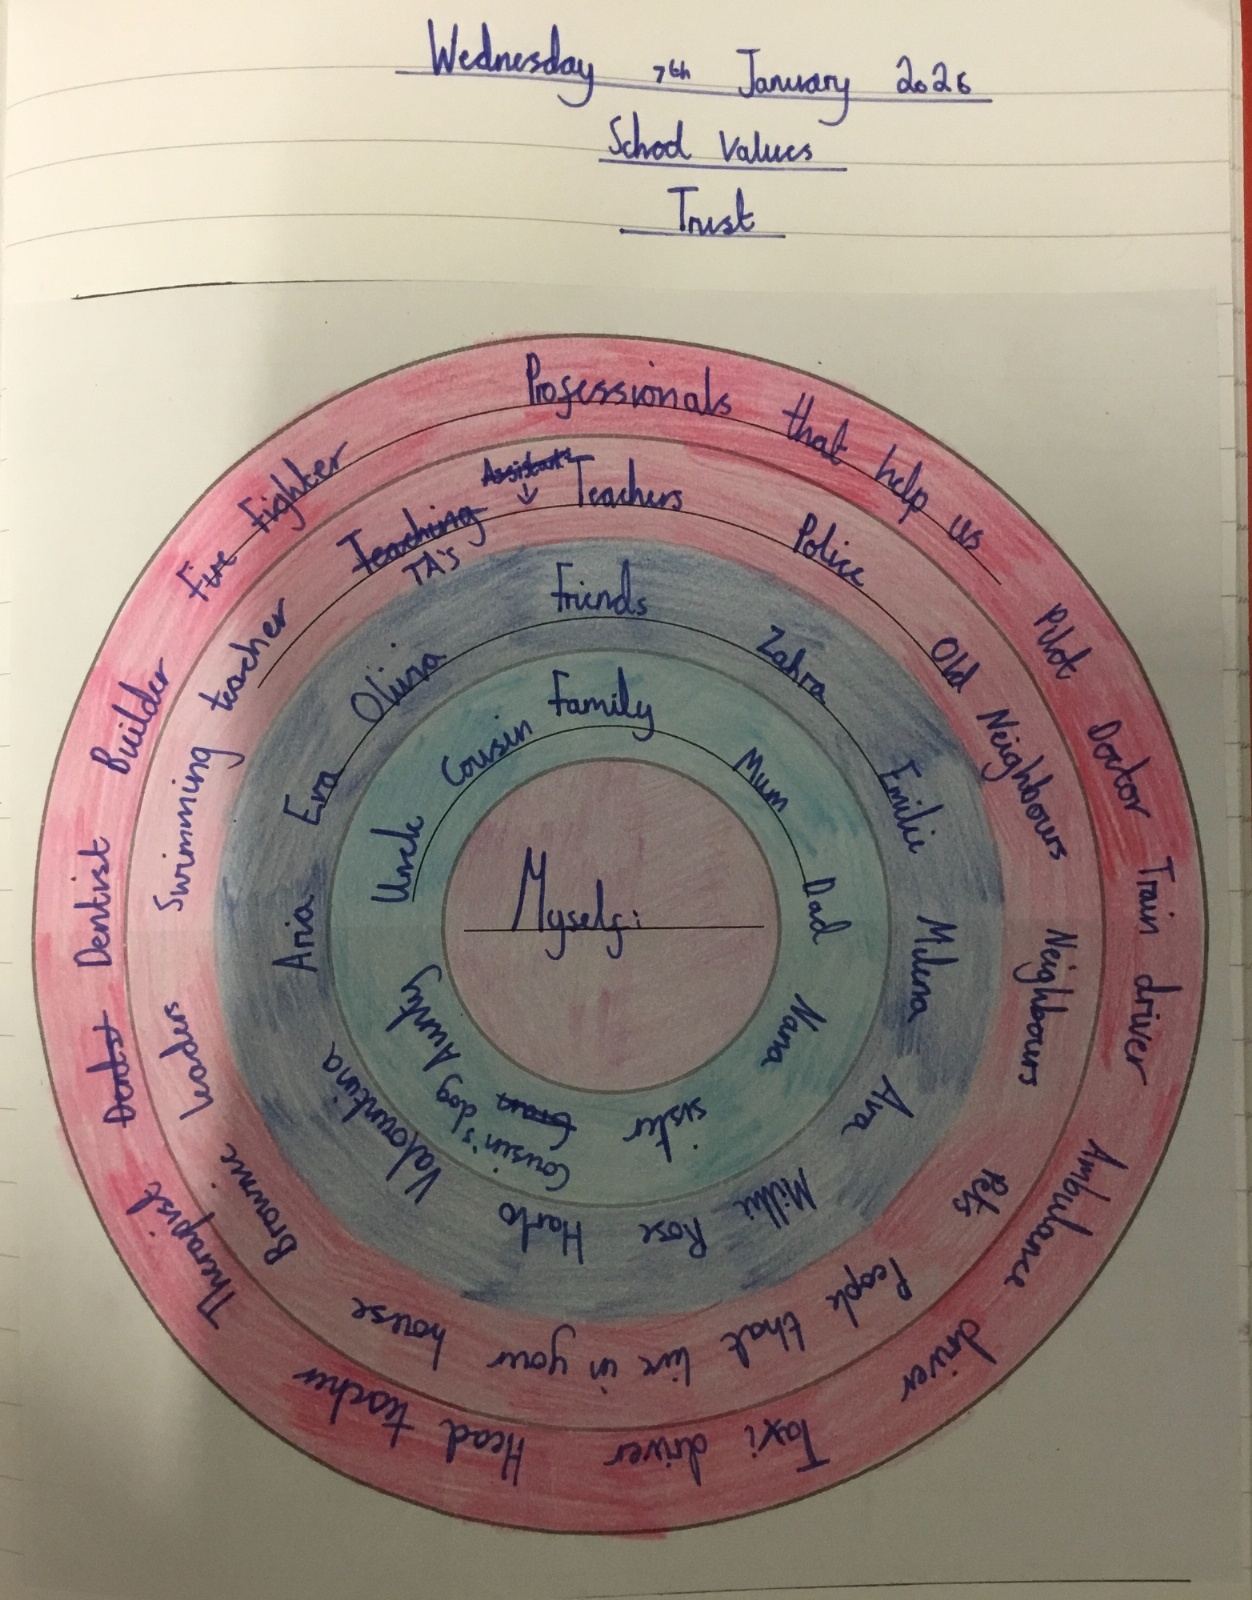 Wednesday 7th January 2026
School Values
Trust
Professionals that help us
Pilot
Doctor
Train driver
Ambulance driver
Taxi driver
Head teacher
Therapist
Dentst
Dentist
Builder
Fire Fighter
Teachers
Police
Old Neighbours
Neighbours
Pets
People that live in your house
Brownie Leaders
Swimming teacher
Teaching Assistants
TA's
Friends
Zahra
Emilie
Milena
Ava
Millie Rose
Harlo
Aria
Eva
Olivia
Family
Mum
Dad
Nana
sister
Cousin's dog
Aunty
Uncle
Cousin
Myself: